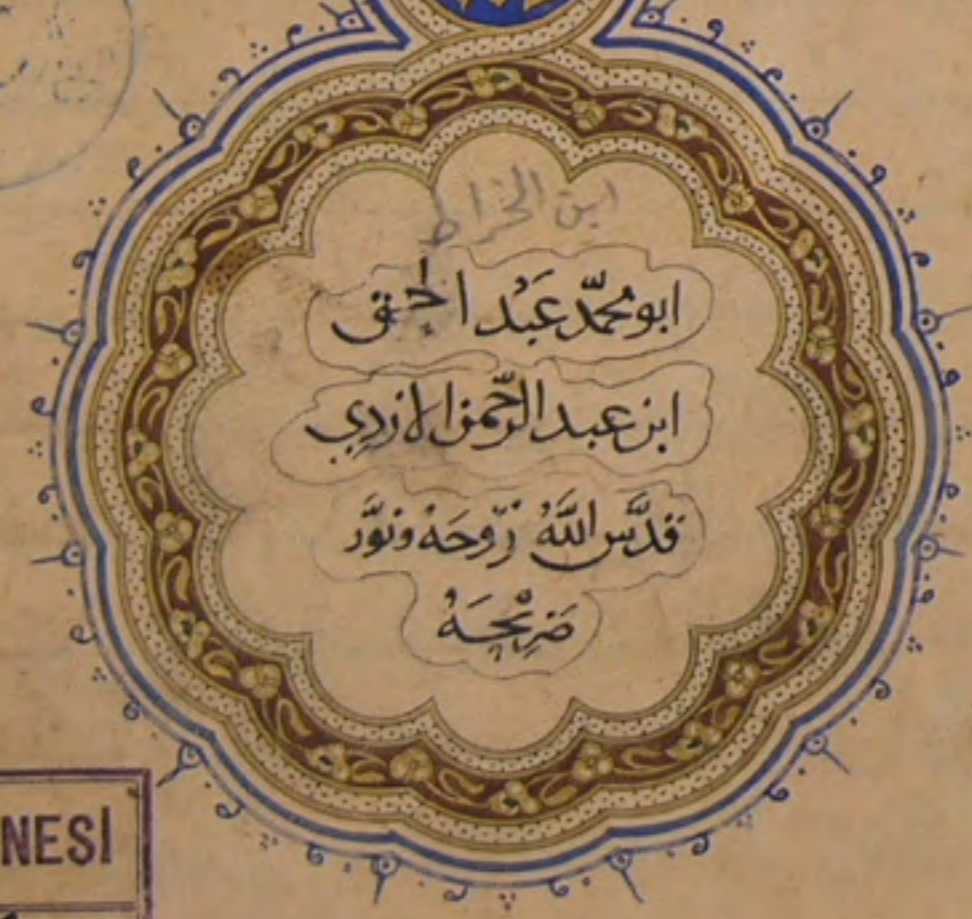 ابن الخراط
ابو محمّد عَبْد الحق
ابن عبد الرّحمن الازدي
قدَّسَ اللَّهُ رُّوحَهُ ونوَّرَ
ضَرِيْحَهُ
NESİ